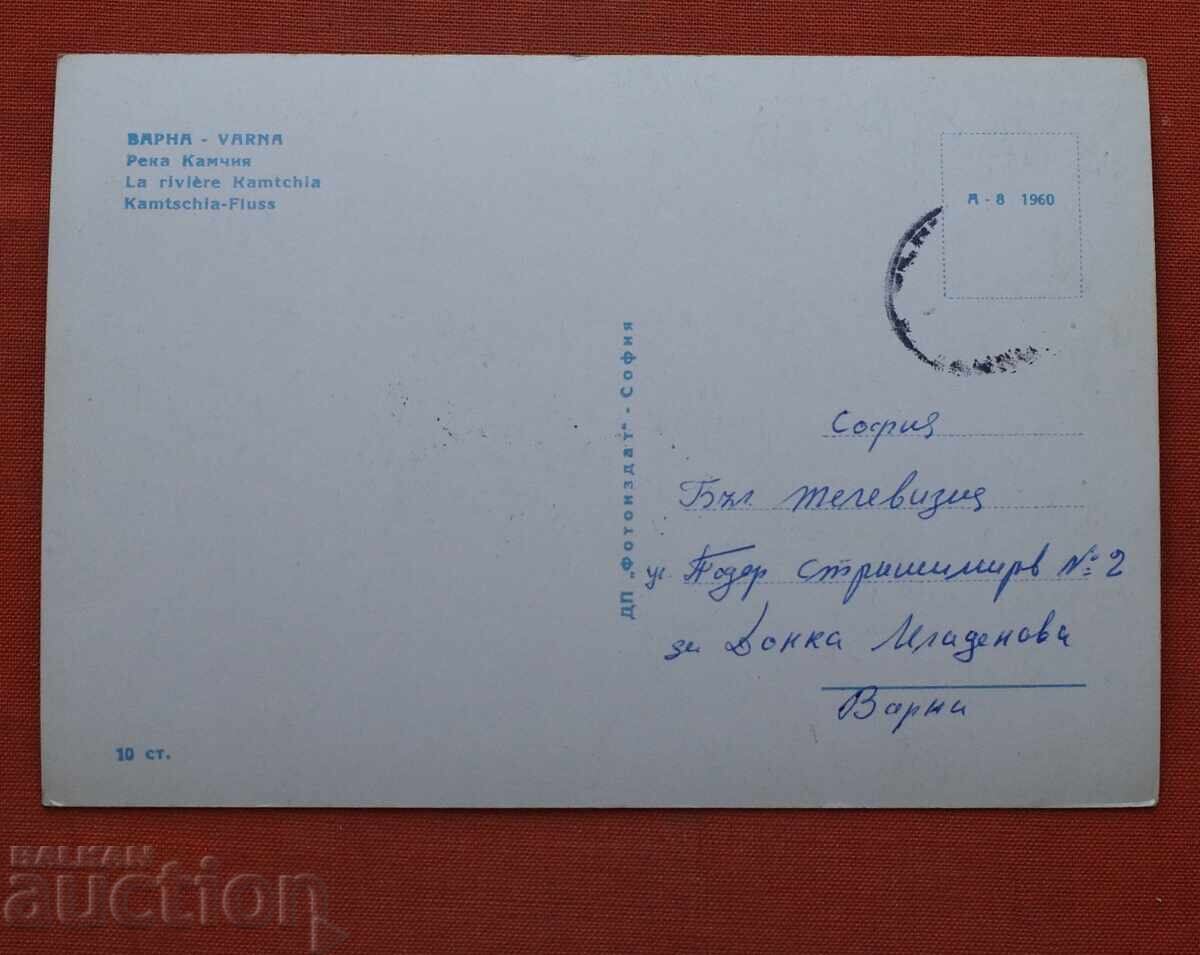 ВАРНА - VARNA
Река Камчия
La rivière Kamtchia
Kamtschia-Fluss
А - 8 1960
ДП „Фотоиздат“ - София
София
Бъл. телевизия
ул. Тодор Страшимиров № 2
за Донка Младенова
Варна
10 ст.
BALKAN
auction